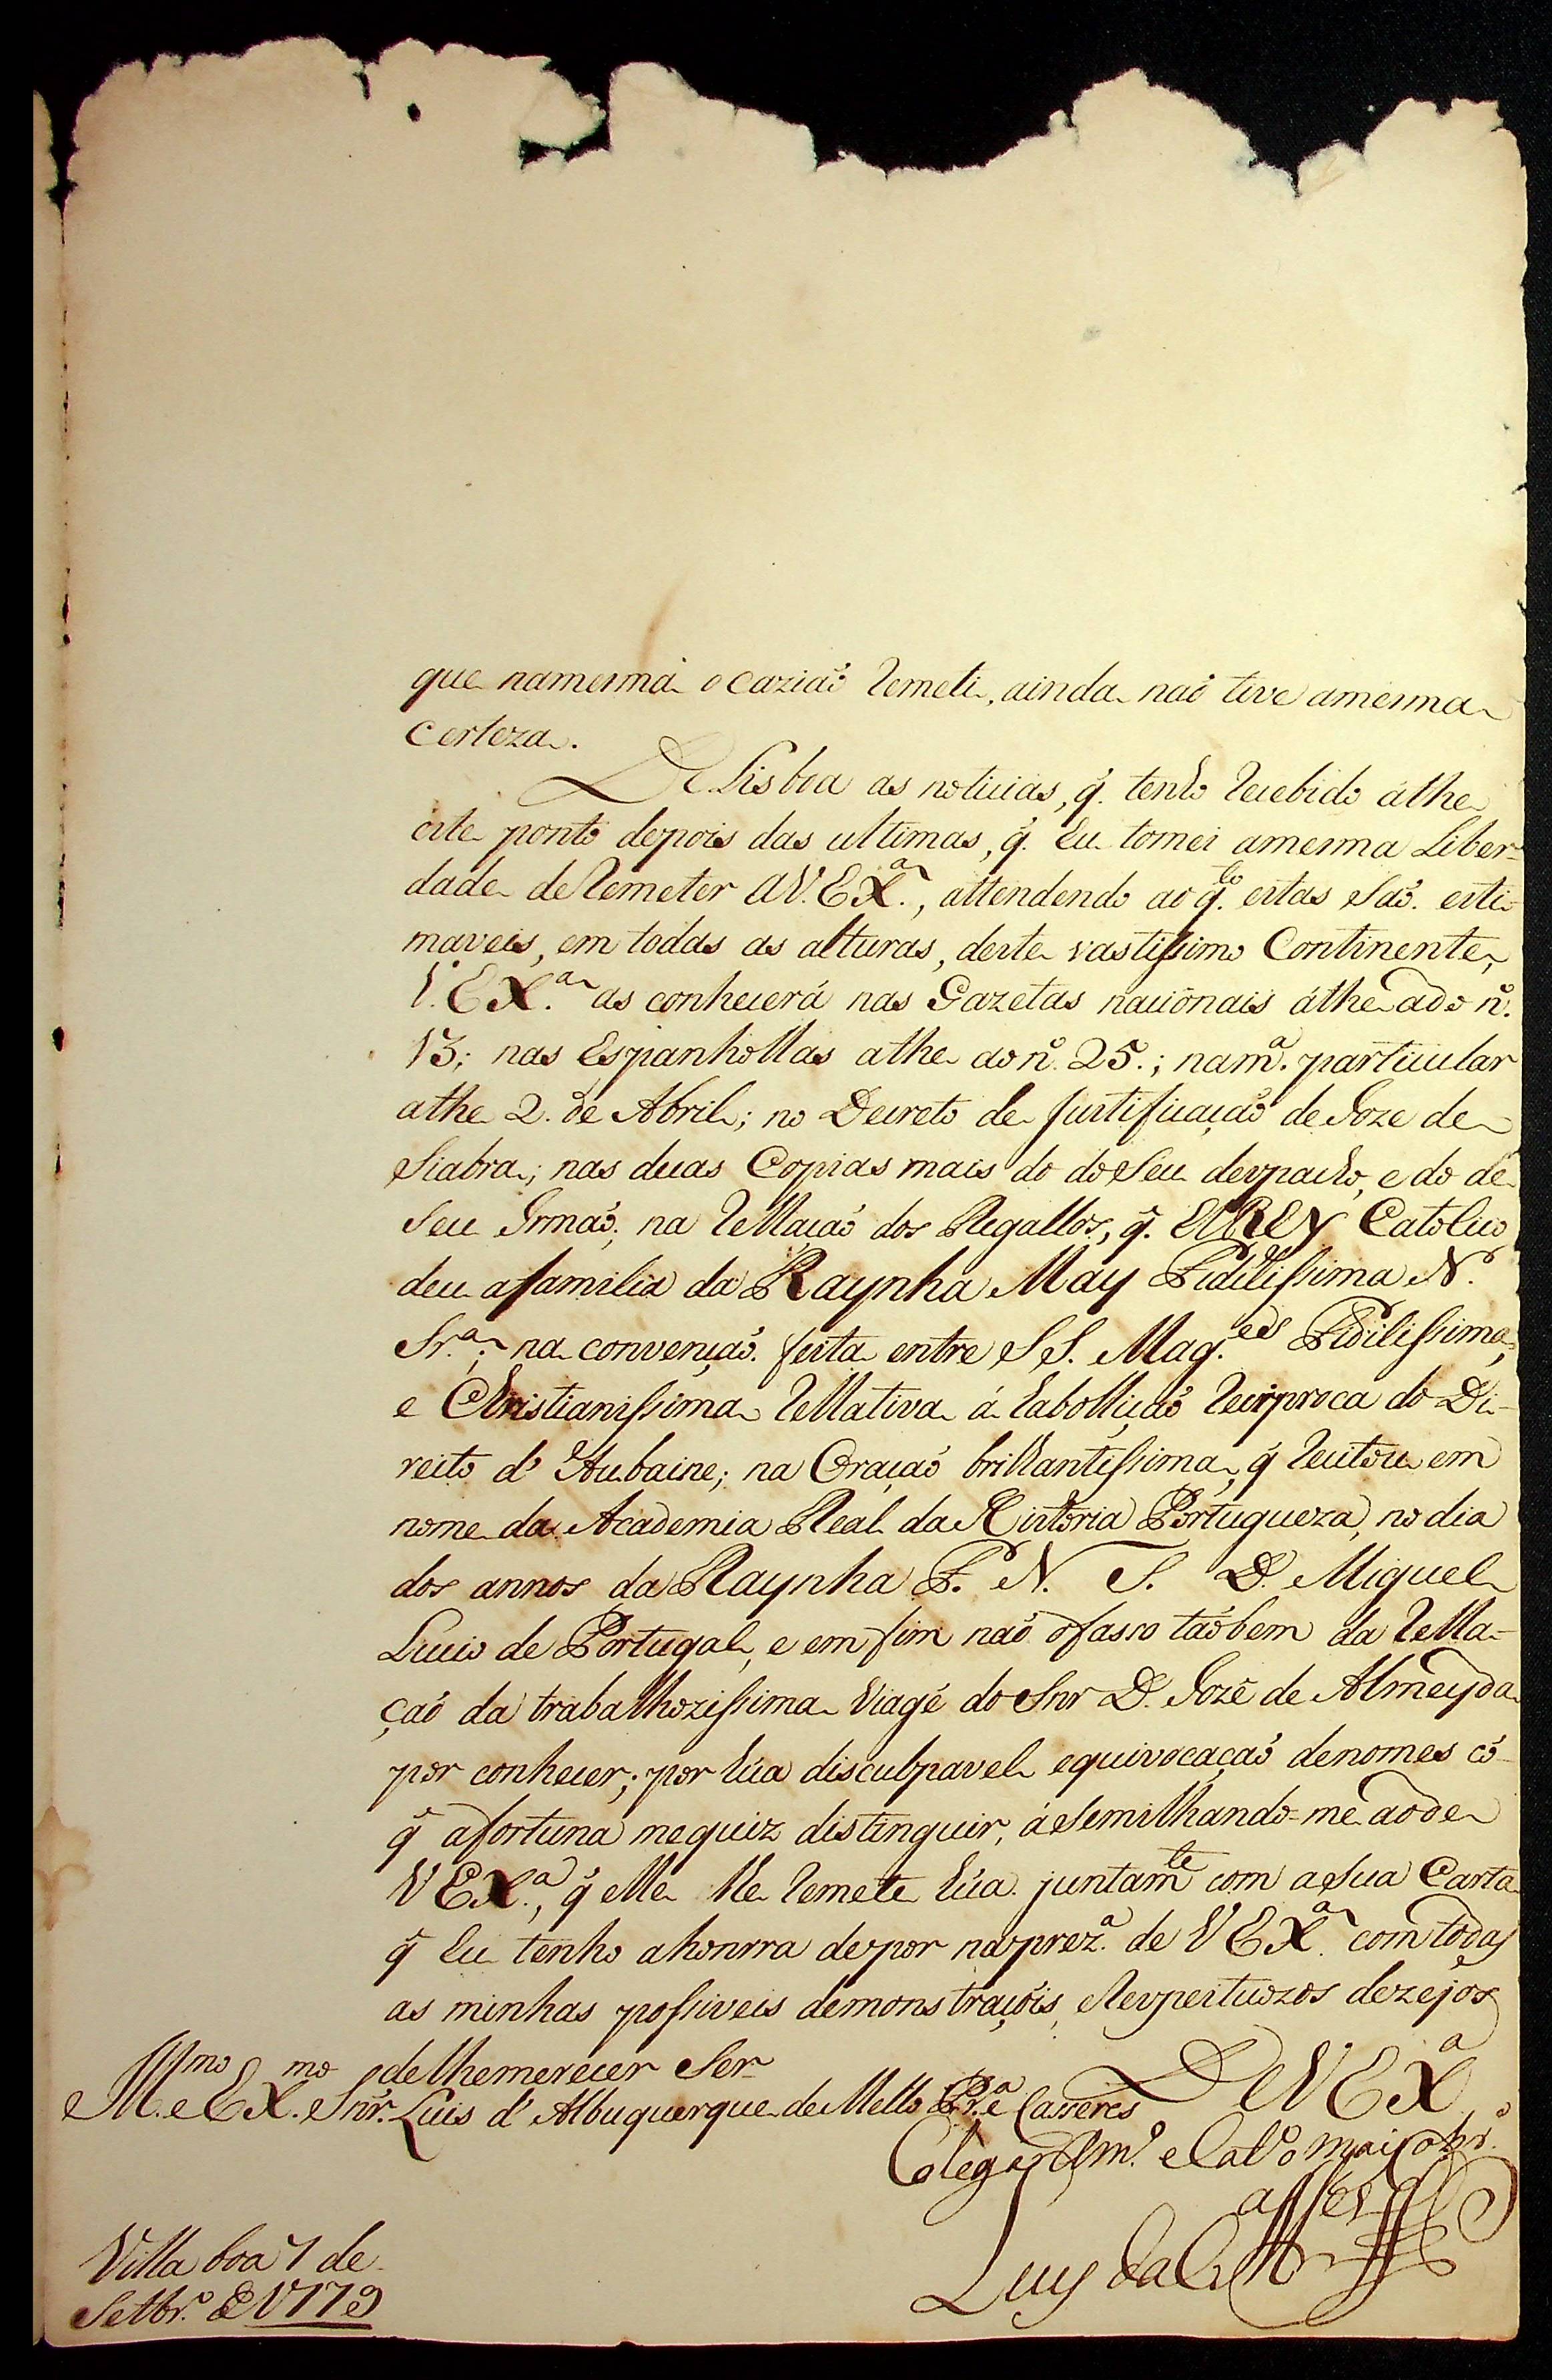 que namesma ocaziaõ remeti, ainda naõ tive amesma
certeza.
De Lisboa as noticias, q̃. tenho recebido áthe
este ponto depois das ultimas, q̃. eu tomei amesma Liber-
dade de remeter a V. EX.ª, attendendo ao q.to estas saõ. esti-
maveis, em todas as alturas, deste vastissimo Continente,
V. EX.ª as conhecerá nas Gazetas nacionais áthe ado nº.
13; nas Espanhollas athe ao nº. 25.; nam.ª particular
athe 2. de Abril; no Decreto de justificaçaõ de Joze de
Siabra; nas duas Copias mais do do Seu despacho, e do de
Seu Irmaõ; na rellaçaõ dos Regallos, q̃. ElREY Catolico
deu afamilia da Raynha May Fidelissima N.
Sr.ª; na convençaõ. feita entre SS. Mag.eds Fidilissima,
e Christianissima rellativa á abolliçaõ reciproca do Di-
reito d'Aubaine; na Oraçaõ brilhantissima, q̃ recitou em
nome da Academia Real da Historia Portugueza, no dia
dos annos da Raynha F. N. S. D. Miguel
Lucio de Portugal, e em fim naõ ofasso taõbem da rella-
çaõ da trabalhozissima Viagẽ do Snr D. Jozé de Almeyda
por conhecer; por húa disculpavel equivocaçaõ denomes cõ
q̃ afortuna mequiz distinguir, áSemilhando-me aode
V EX.ª, q̃ elle lhe remete húa juntam.te com asua Carta
q̃ eu tenho ahonrra depor naprez.ª de V EX.ª com todas
as minhas possiveis demonstraçoĩs, e respectuozos dezejos
delhemerecer Ser
Ill.mo e EX.mo Snr. Luis d'Albuquerque de Mello P.ª e Casseres
De V EX.ª
Colega Am.º e Cat.º mais obr.º
Luis da C.
Villa boa 1 de
Setbr.º de 1779